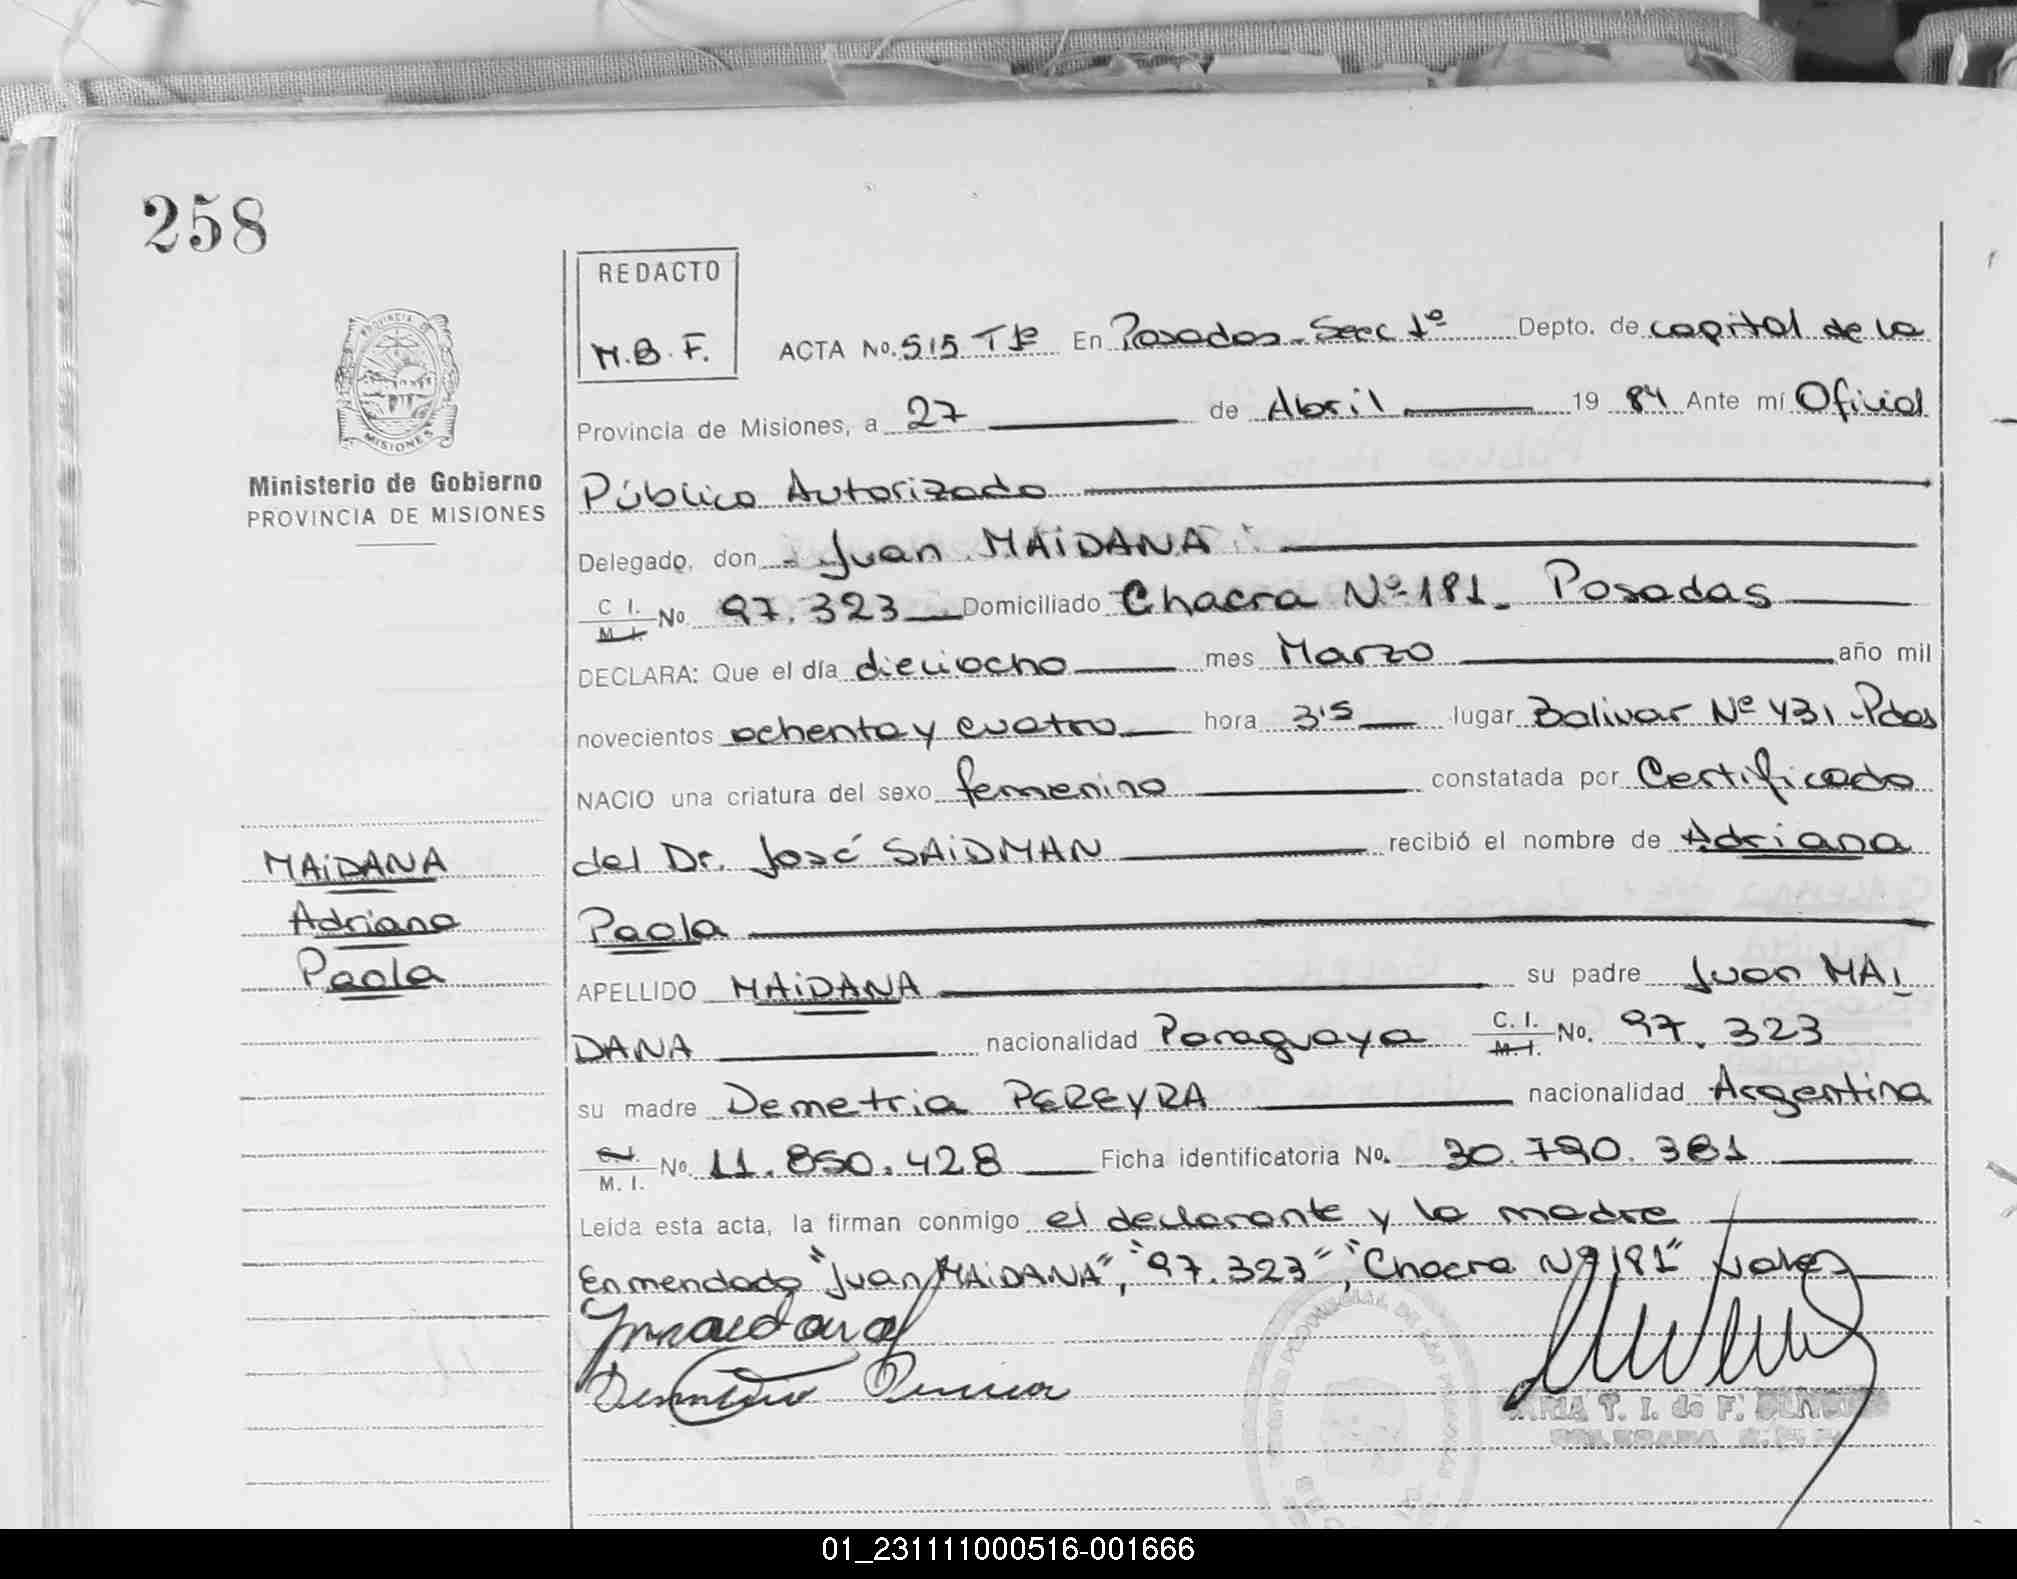 258
REDACTO
M.B.F.
ACTA No. 515 T Iº En Posadas - Secc 1º Depto. de capital de la
Provincia de Misiones, a 27 de Abril 19 84 Ante mí Oficial
Público Autorizado
Delegado, don Juan MAiDANA
C I. M. I. No. 97.323 Domiciliado Chacra Nº 181 - Posadas
DECLARA: Que el día dieciocho mes Marzo año mil
novecientos ochenta y cuatro hora 3'5 lugar Bolivar Nº 431 - Pdas
NACIO una criatura del sexo femenino constatada por Certificado
del Dr. José SAiDMAN recibió el nombre de Adriana
Paola
APELLIDO MAiDANA su padre Juan MAI
DANA nacionalidad Paraguaya C. I. M. I. No. 97.323
su madre Demetria PEREYRA nacionalidad Argentina
C. I. M. I. No. 11.850.428 Ficha identificatoria No. 30.790.381
Leída esta acta, la firman conmigo el declarante y la madre
Enmendado "Juan MAiDANA", "97.323", "Chacra Nº 181" Vale
PROVINCIA DE
MISIONES
Ministerio de Gobierno
PROVINCIA DE MISIONES
MAiDANA
Adriana
Paola
MARIA T. I. de F.
DELEGADA
01_231111000516-001666